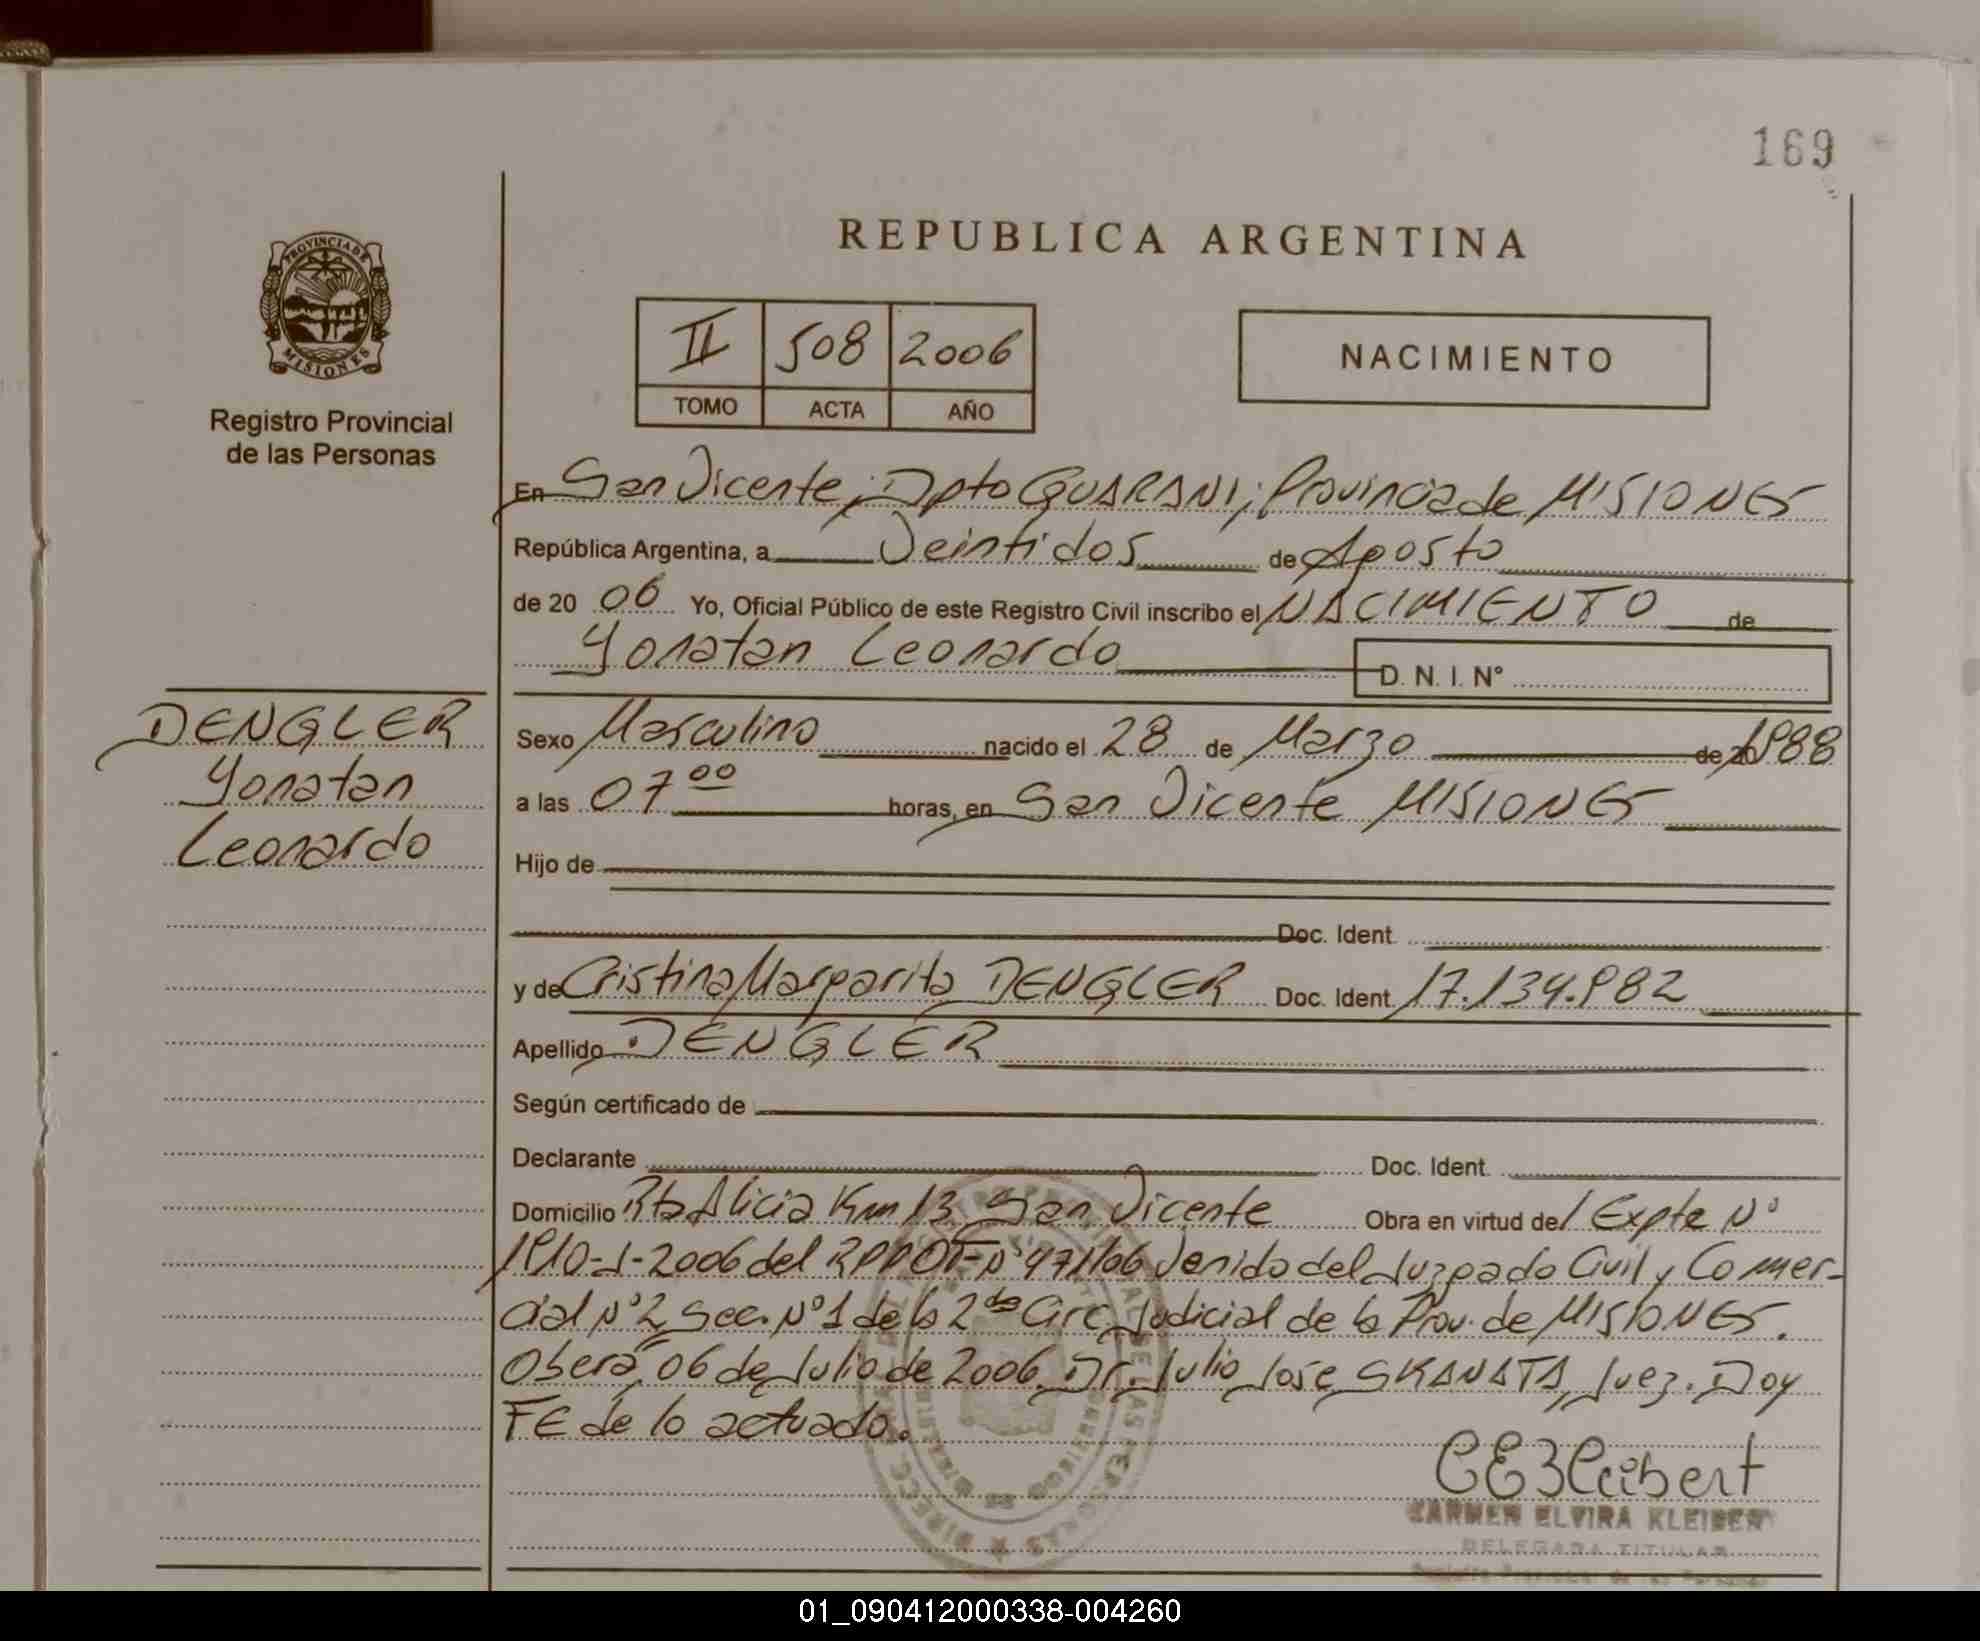 169
PROVINCIA DE
MISIONES
REPUBLICA ARGENTINA
II 508 2006
TOMO ACTA AÑO
NACIMIENTO
Registro Provincial
de las Personas
En San Vicente, Dpto GUARANI, Provincia de MISIONES
República Argentina, a Veintidos de Agosto
de 20 06 Yo, Oficial Público de este Registro Civil inscribo el NACIMIENTO de
Yonatan Leonardo D. N. I. N°
DENGLER
Yonatan
Leonardo
Sexo Masculino nacido el 28 de Marzo de 1988
a las 07 00 horas, en San Vicente MISIONES
Hijo de
Doc. Ident.
y de Cristina Margarita DENGLER Doc. Ident. 17.134.982
Apellido DENGLER
Según certificado de
Declarante Doc. Ident.
Domicilio Rta Alicia Km 13 San Vicente Obra en virtud del Expte Nº
1910-J-2006 del RPP OF-Nº 971/06 Venido del Juzgado Civil y Comer-
cial Nº 2, Sec. Nº 1 de la 2da Circ. Judicial de la Prov. de MISIONES.
Oberá, 06 de Julio de 2006. Dr. Julio Jose SKANATA, Juez. Doy
FE de lo actuado.
CEKleibert
CARMEN ELVIRA KLEIBERT
DELEGADA TITULAR
01_090412000338-004260